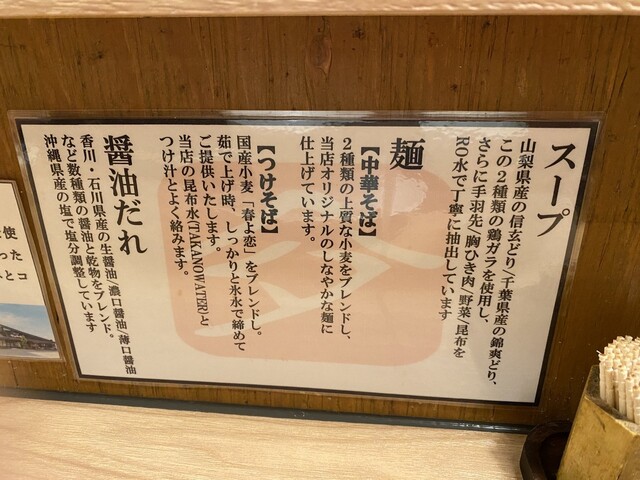 スープ
山梨県産の信玄どり/千葉県産の錦爽どり、
この2種類の鶏ガラを使用し、
さらに手羽先/胸ひき肉/野菜/昆布を
RO水で丁寧に抽出しています
麺
【中華そば】
2種類の上質な小麦をブレンドし、
当店オリジナルのしなやかな麺に
仕上げています。
【つけそば】
国産小麦「春よ恋」をブレンドし。
茹で上げ時、しっかりと氷水で締めて
ご提供いたします。
当店の昆布水(TAKANOWATER)と
つけ汁とよく絡みます。
醤油だれ
香川・石川県産の生醤油/濃口醤油/薄口醤油
など数種類の醤油と乾物をブレンド。
沖縄県産の塩で塩分調整しています
使
った
とコ